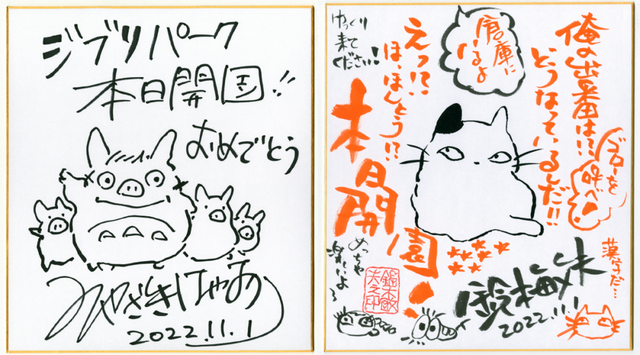 ジブリパーク
本日開園!!
おめでとう
みやざきはやお
2022.11.1
俺の出番は!?
どうなっているんだ!!
ゴローを
呼べ!
倉庫に
いるよ
ゆっくり
来て
ください!
えっ!?
ほ、ほんとう!?
本日開園!
漢字だ…
めちゃ
楽しいよ〜
鈴木敏夫
2022.11.1